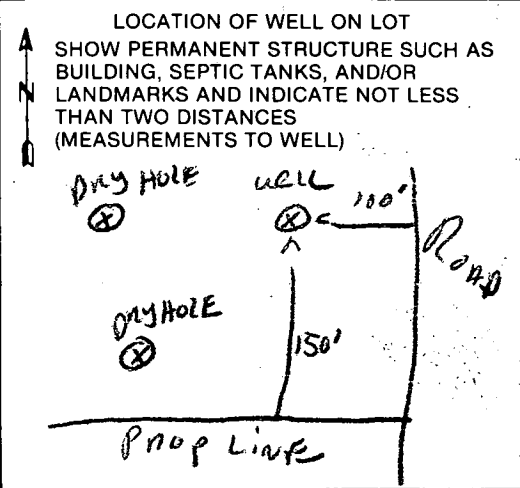 LOCATION OF WELL ON LOT
SHOW PERMANENT STRUCTURE SUCH AS
BUILDING, SEPTIC TANKS, AND/OR
N LANDMARKS AND INDICATE NOT LESS
THAN TWO DISTANCES
(MEASUREMENTS TO WELL)
DRY HOLE WELL 100'
ROAD
DRY HOLE
150'
PROP LINE